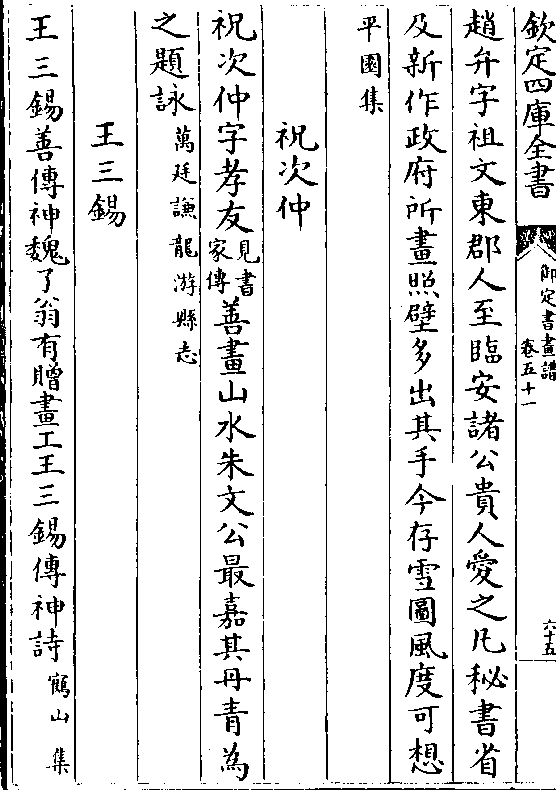 欽定四庫全書
御定書畫譜
卷五十一
六十五
趙弁字祖文東郡人至臨安諸公貴人愛之凡秘書省
及新作政府所畫照壁多出其手今存雪圖風度可想
平園集
祝次仲
祝次仲字孝友見書家傳善畫山水朱文公最嘉其丹青為
之題詠萬廷謙龍游縣志
王三錫
王三錫善傳神魏了翁有贈畫工王三錫傳神詩鶴山集